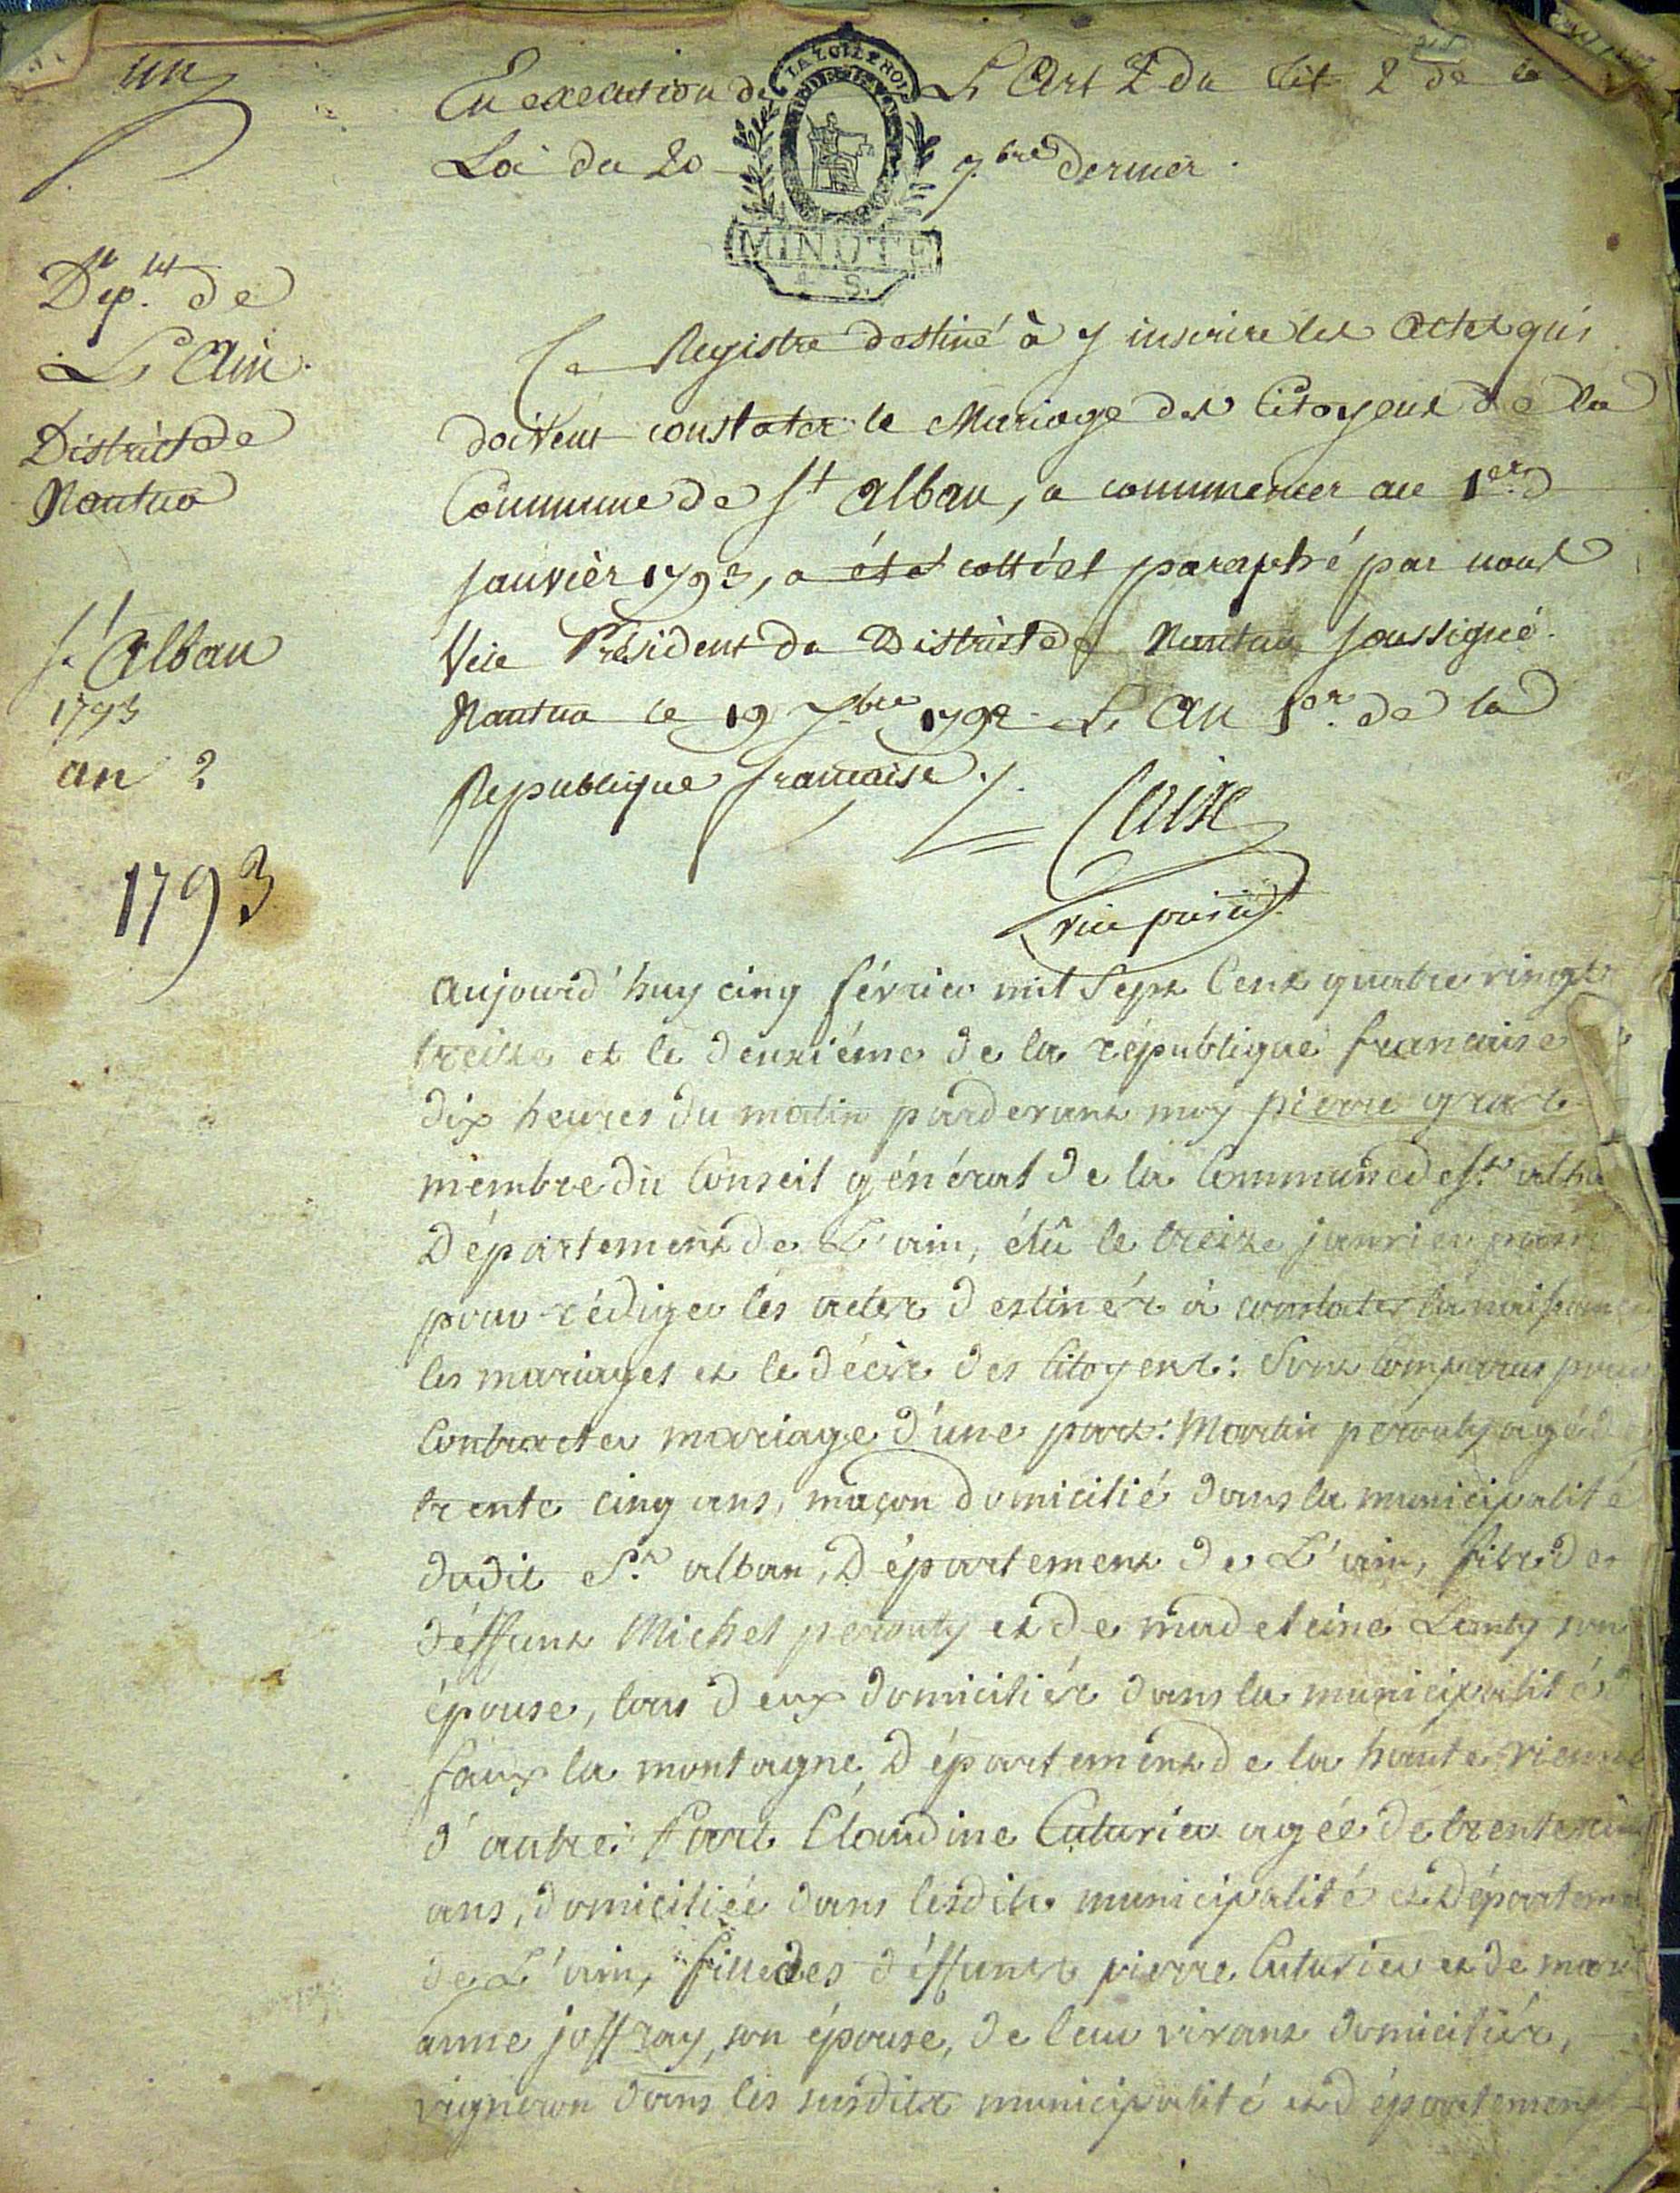 un
En execution de L'Art 2 du tit 2 de la
Loi du 20 7.bre dernier.
LA LOI LE ROI
MINUTE
4 S.
Dép.nt de
L'Ain.
District de
Nantua
Ce Registre destiné à y inscrire les Actes qui
doivent constater le Mariage des Citoyens de la
Commune de St Alban, a commencer au 1er
Janvièr 1793, a été cotté et paraphé par nous
Vice Président du District de Nantua soussigné.
Nantua le 19 Xbre 1792 L'An 1er. de la
Republique francaise ./.
St Alban
1793
an 2
1793
vice présid.t
aujourd'huy cinq février mil Sept Cent quatre vingt
treize et le deuxiéme de la république francaise
dix heures du matin pardevant moy pierre
membre du Conseil général de la Commune de St. alba
Département de L'ain, élû le treize janvier
pour rédiger les actes destinés à constater la naissance
les mariages et le décès des Citoyens: Sont Comparus pour
Contracter mariage d'une part: Martin pérouty agé de
trente cinq ans, maçon domicilié dans la municipalité
dudit St. alban, Département de L'ain, fils de
déffunt Michel perouty et de madeleine Lanty son
épouse, tous deux domiciliés dans la municipalité d
faux la montagne, Département de la haute vienne
d'autre Part Claudine Cuturier agée de trente
ans, domiciliée dans lesdits municipalité et Départeme
de L'ain, fille des déffunts pierre Cuturier et de mari
anne joffray, son épouse, de leur vivant domiciliés,
vigneron dans les susdits municipalité et département